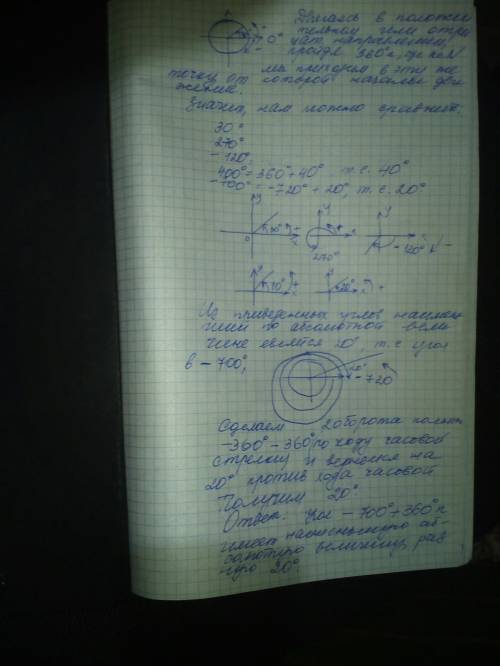 Двигаясь в положи
тельном или отри
цат. направлении,
пройдя 360°n, где n∈N
мы приходим в эту же
точку от которой начали дви
жение.
Значит, нам можно сравнить:
30°
270°
-120°
400° = 360° + 40° т.е. 40°
-700° = -720° + 20°, т.е. 20°
Из приведенных углов наимень
ший по абсолютной вели
чине является 20°, т.е угол
в -700°,
20°
-720°
Сделаем 2 оборота полных
-360° - 360° по ходу часовой
стрелки и вернемся на
20° против хода часовой
Получим 20°.
Ответ: угол -700° + 360°n
имеет наименьшую аб-
солютную величину, рав
ную 20°